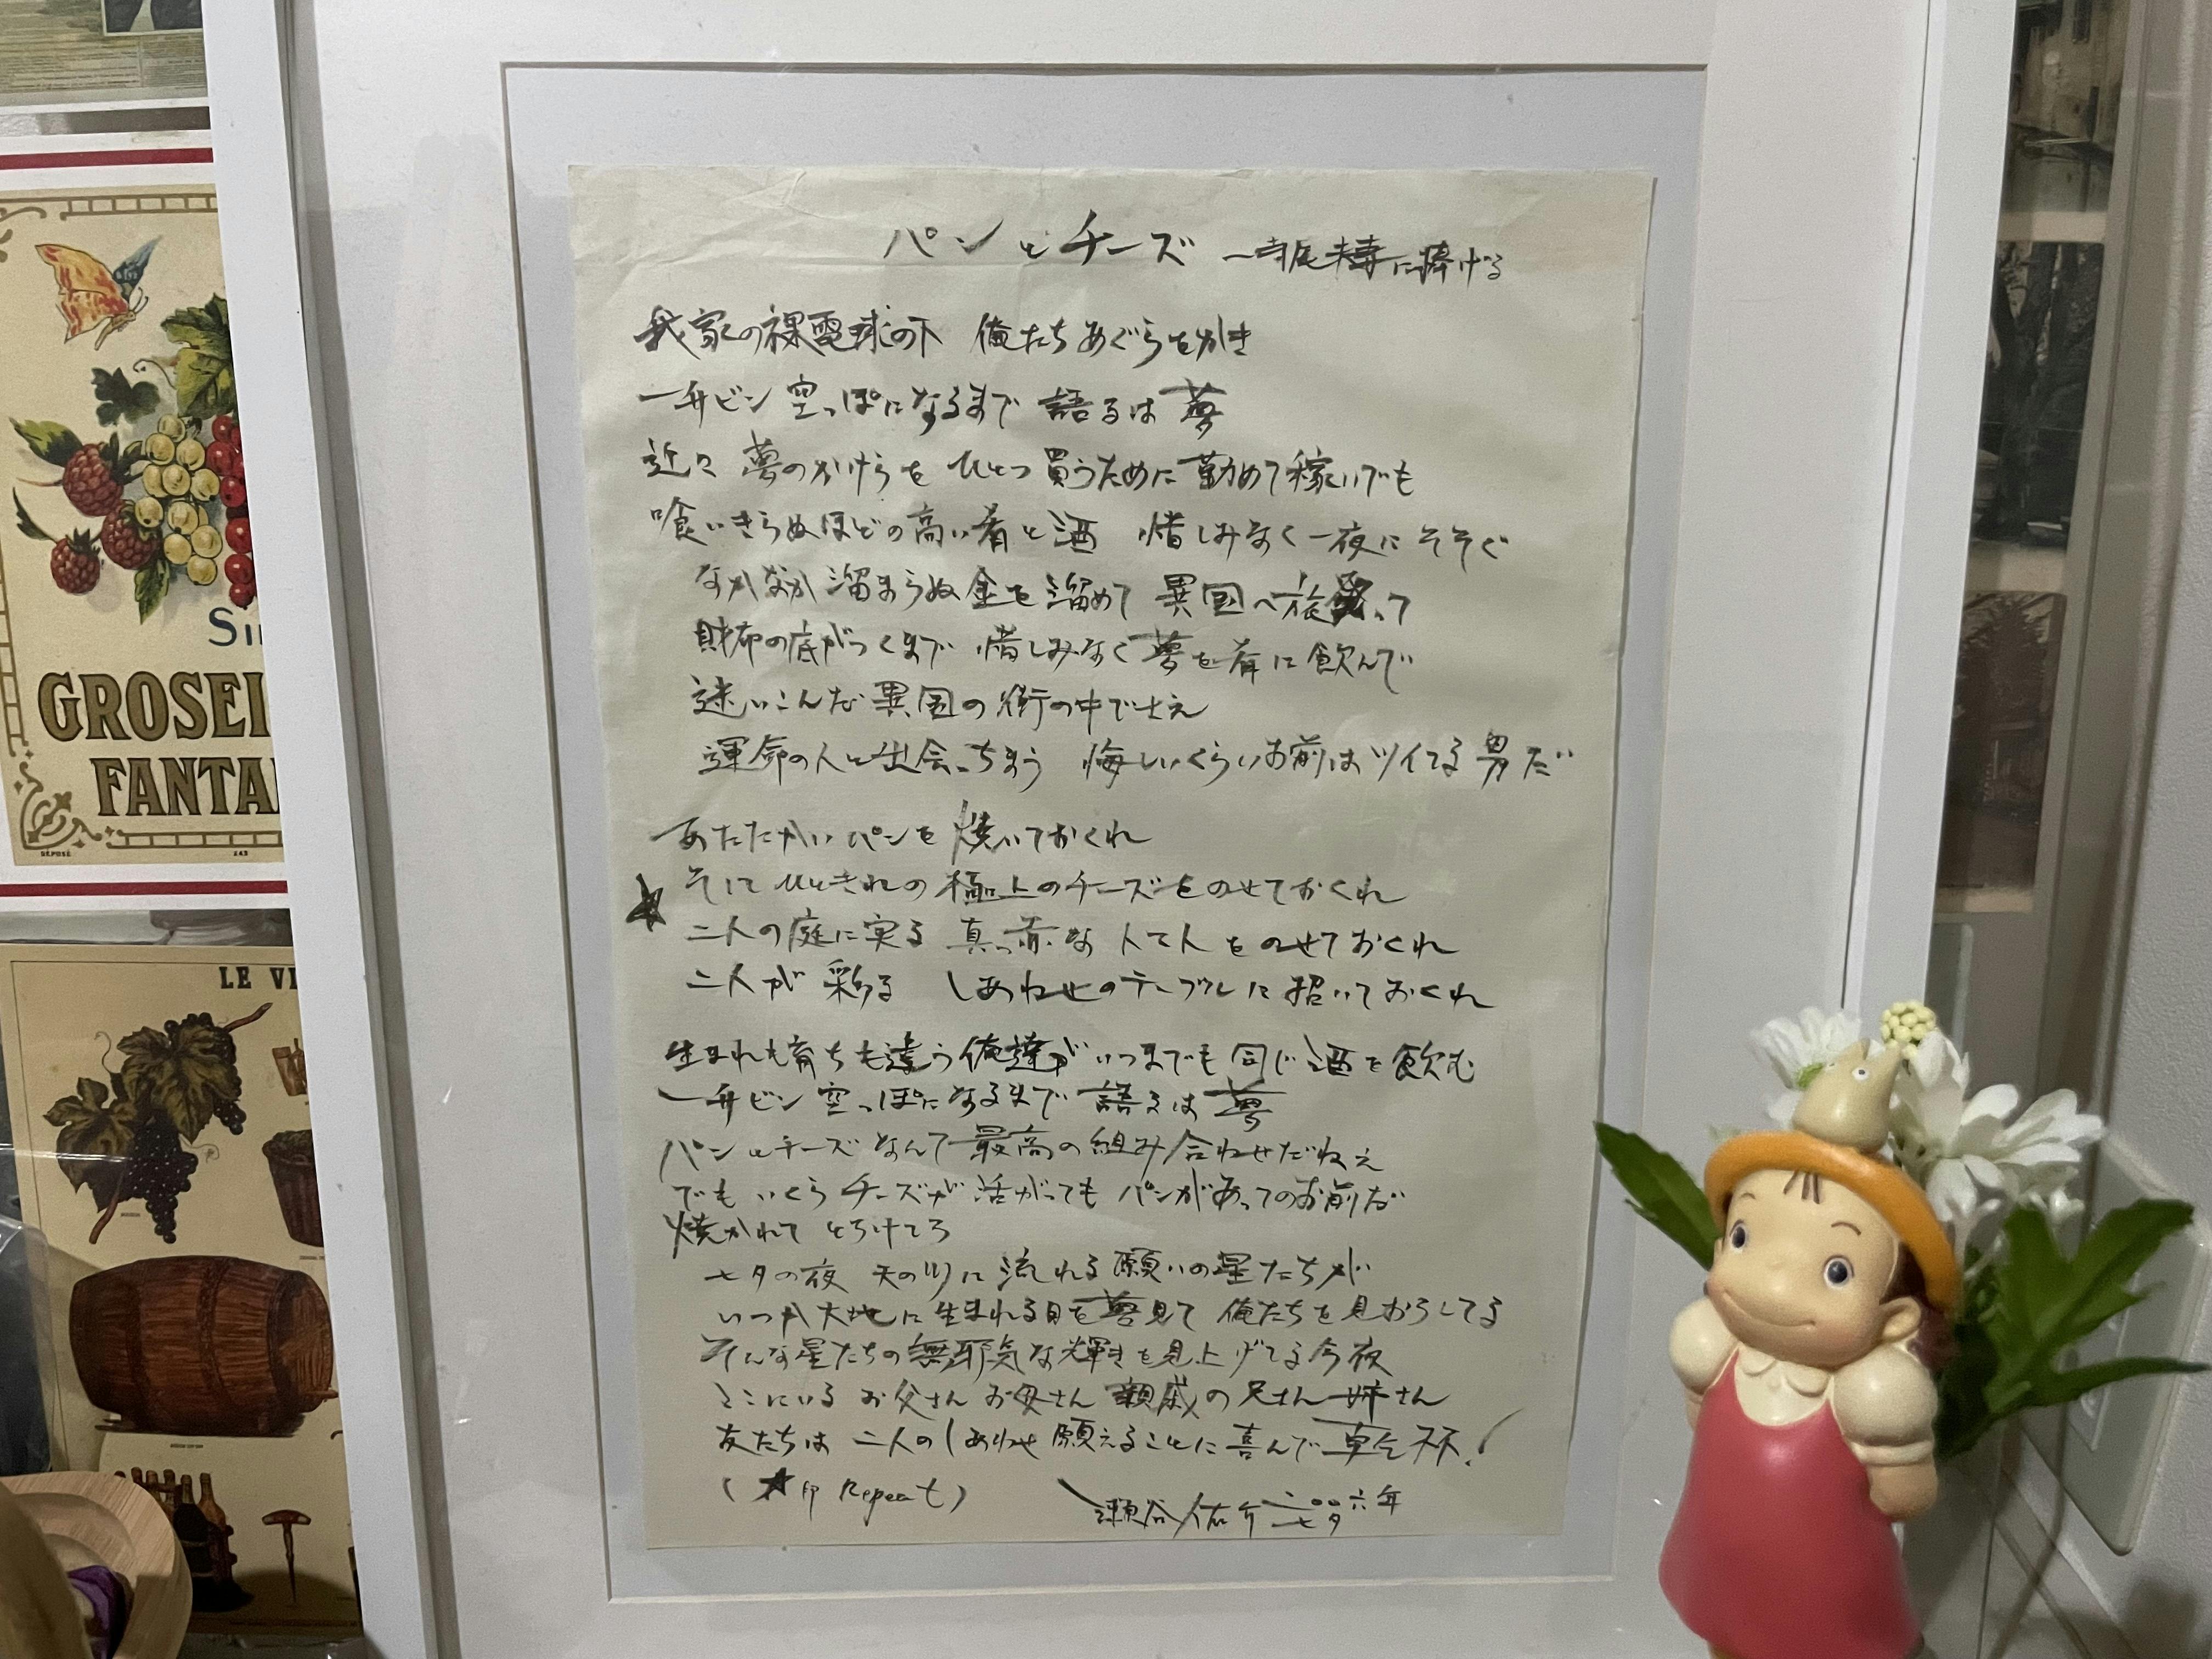 パンとチーズ 〜寺尾夫妻に捧げる
我家の裸電球の下 俺たちあぐらをかき
一升ビン空っぽになるまで 語るは夢
近々 夢のかけらを ひとつ買うために 勤めて稼いでも
喰いきらぬほどの高い肴と酒 惜しみなく一夜にそそぐ
なかなか溜まらぬ金を溜めて 異国へ旅 って
財布の底がつくまで 惜しみなく夢を肴に飲んで
迷いこんだ異国の街の中でさえ
運命の人と出会っちまう 悔しいくらいお前はツイてる男だ
あたたかいパンを焼いておくれ
そしてひときれの極上のチーズをのせておくれ
★
二人の庭に実る 真っ赤なトマトをのせておくれ
二人が彩る しあわせのテーブルに招いておくれ
生まれも育ちも違う俺達が いつまでも同じ酒を飲む
一升ビン空っぽになるまで 語るは夢
パンとチーズなんて最高の組み合わせだねえ
でもいくらチーズが活がっても パンがあってのお前だ
焼かれてとろけてろ
七夕の夜 天の川に流れる願いの星たちが
いつか大地に生まれる日を夢見て 俺たちを見おろしてる
そんな星たちの無邪気な輝きを見上げてる今夜
ここにいる お父さん お母さん 親戚の兄さん姉さん
友たちは 二人のしあわせ願えることに喜んで乾杯!
(★印 Repeat)
瀬谷佑介 二〇〇六年
七夕
SI
GROSEI
FANTA
DÉPOSÉ
LE VI